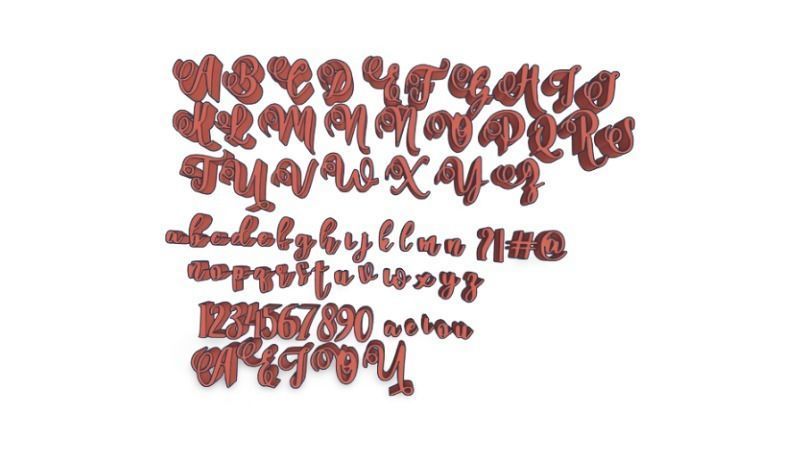 A B C D E F G H I J
K L M N Ñ O P Q R S
T U V W X Y Z
a b c d e f g h i j k l m n ?!#@
ñ o p q r s t u v w x y z
1234567890 a e i o u
A E I O U